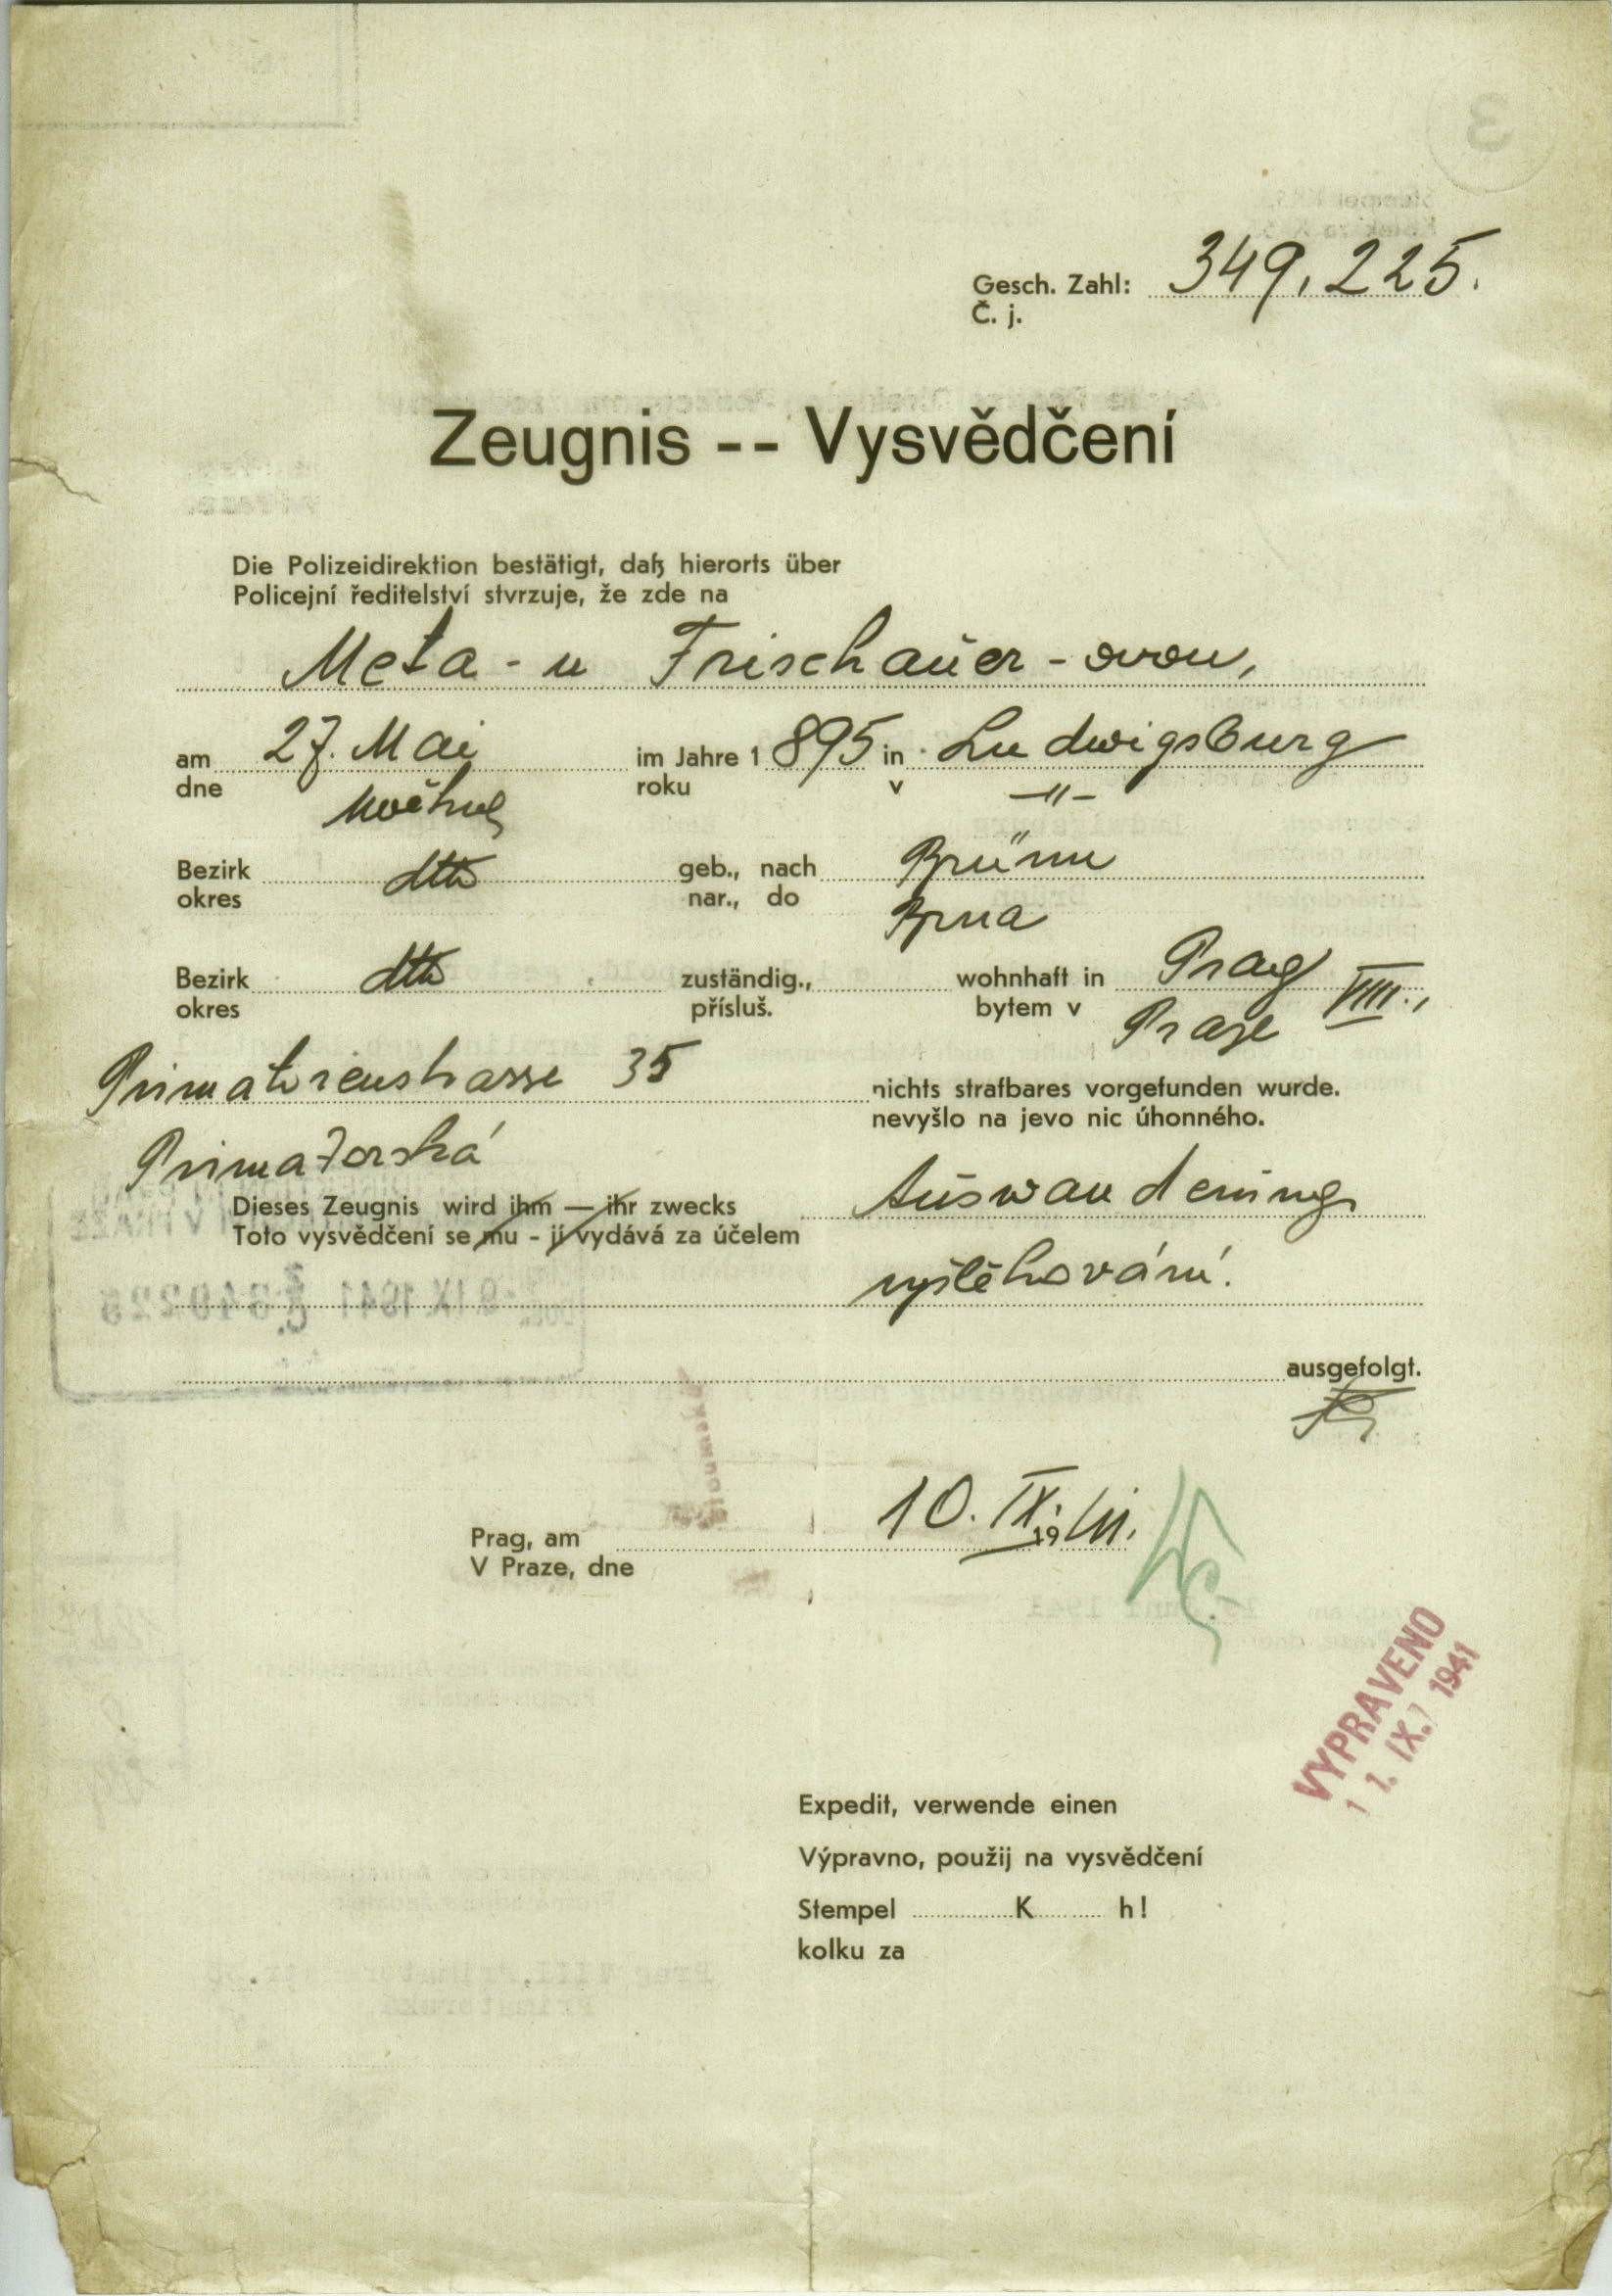 Gesch. Zahl: 349.225.
Č. j.
Zeugnis -- Vysvědčení
Die Polizeidirektion bestätigt, daß hierorts über
Policejní ředitelství stvrzuje, že zde na
Meta-u Frischauer-ovou,
am 27. Mai im Jahre 1 895 in Ludwigsburg
dne května roku v -"-
Bezirk dtto geb., nach Brünn
okres nar., do Brna
Bezirk dtto zuständig., wohnhaft in Prag VIII.,
okres přísluš. bytem v Praze
Primatorenstrasse 35 nichts strafbares vorgefunden wurde.
nevyšlo na jevo nic úhonného.
Primatorská
Dieses Zeugnis wird ihm — ihr zwecks Auswanderung
Toto vysvědčení se mu - jí vydává za účelem
vystěhování.
ausgefolgt.
Prag, am 10. IX. 19 41.
V Praze, dne
VYPRAVENO
11. IX. 1941
Expedit, verwende einen
Výpravno, použij na vysvědčení
Stempel K h!
kolku za